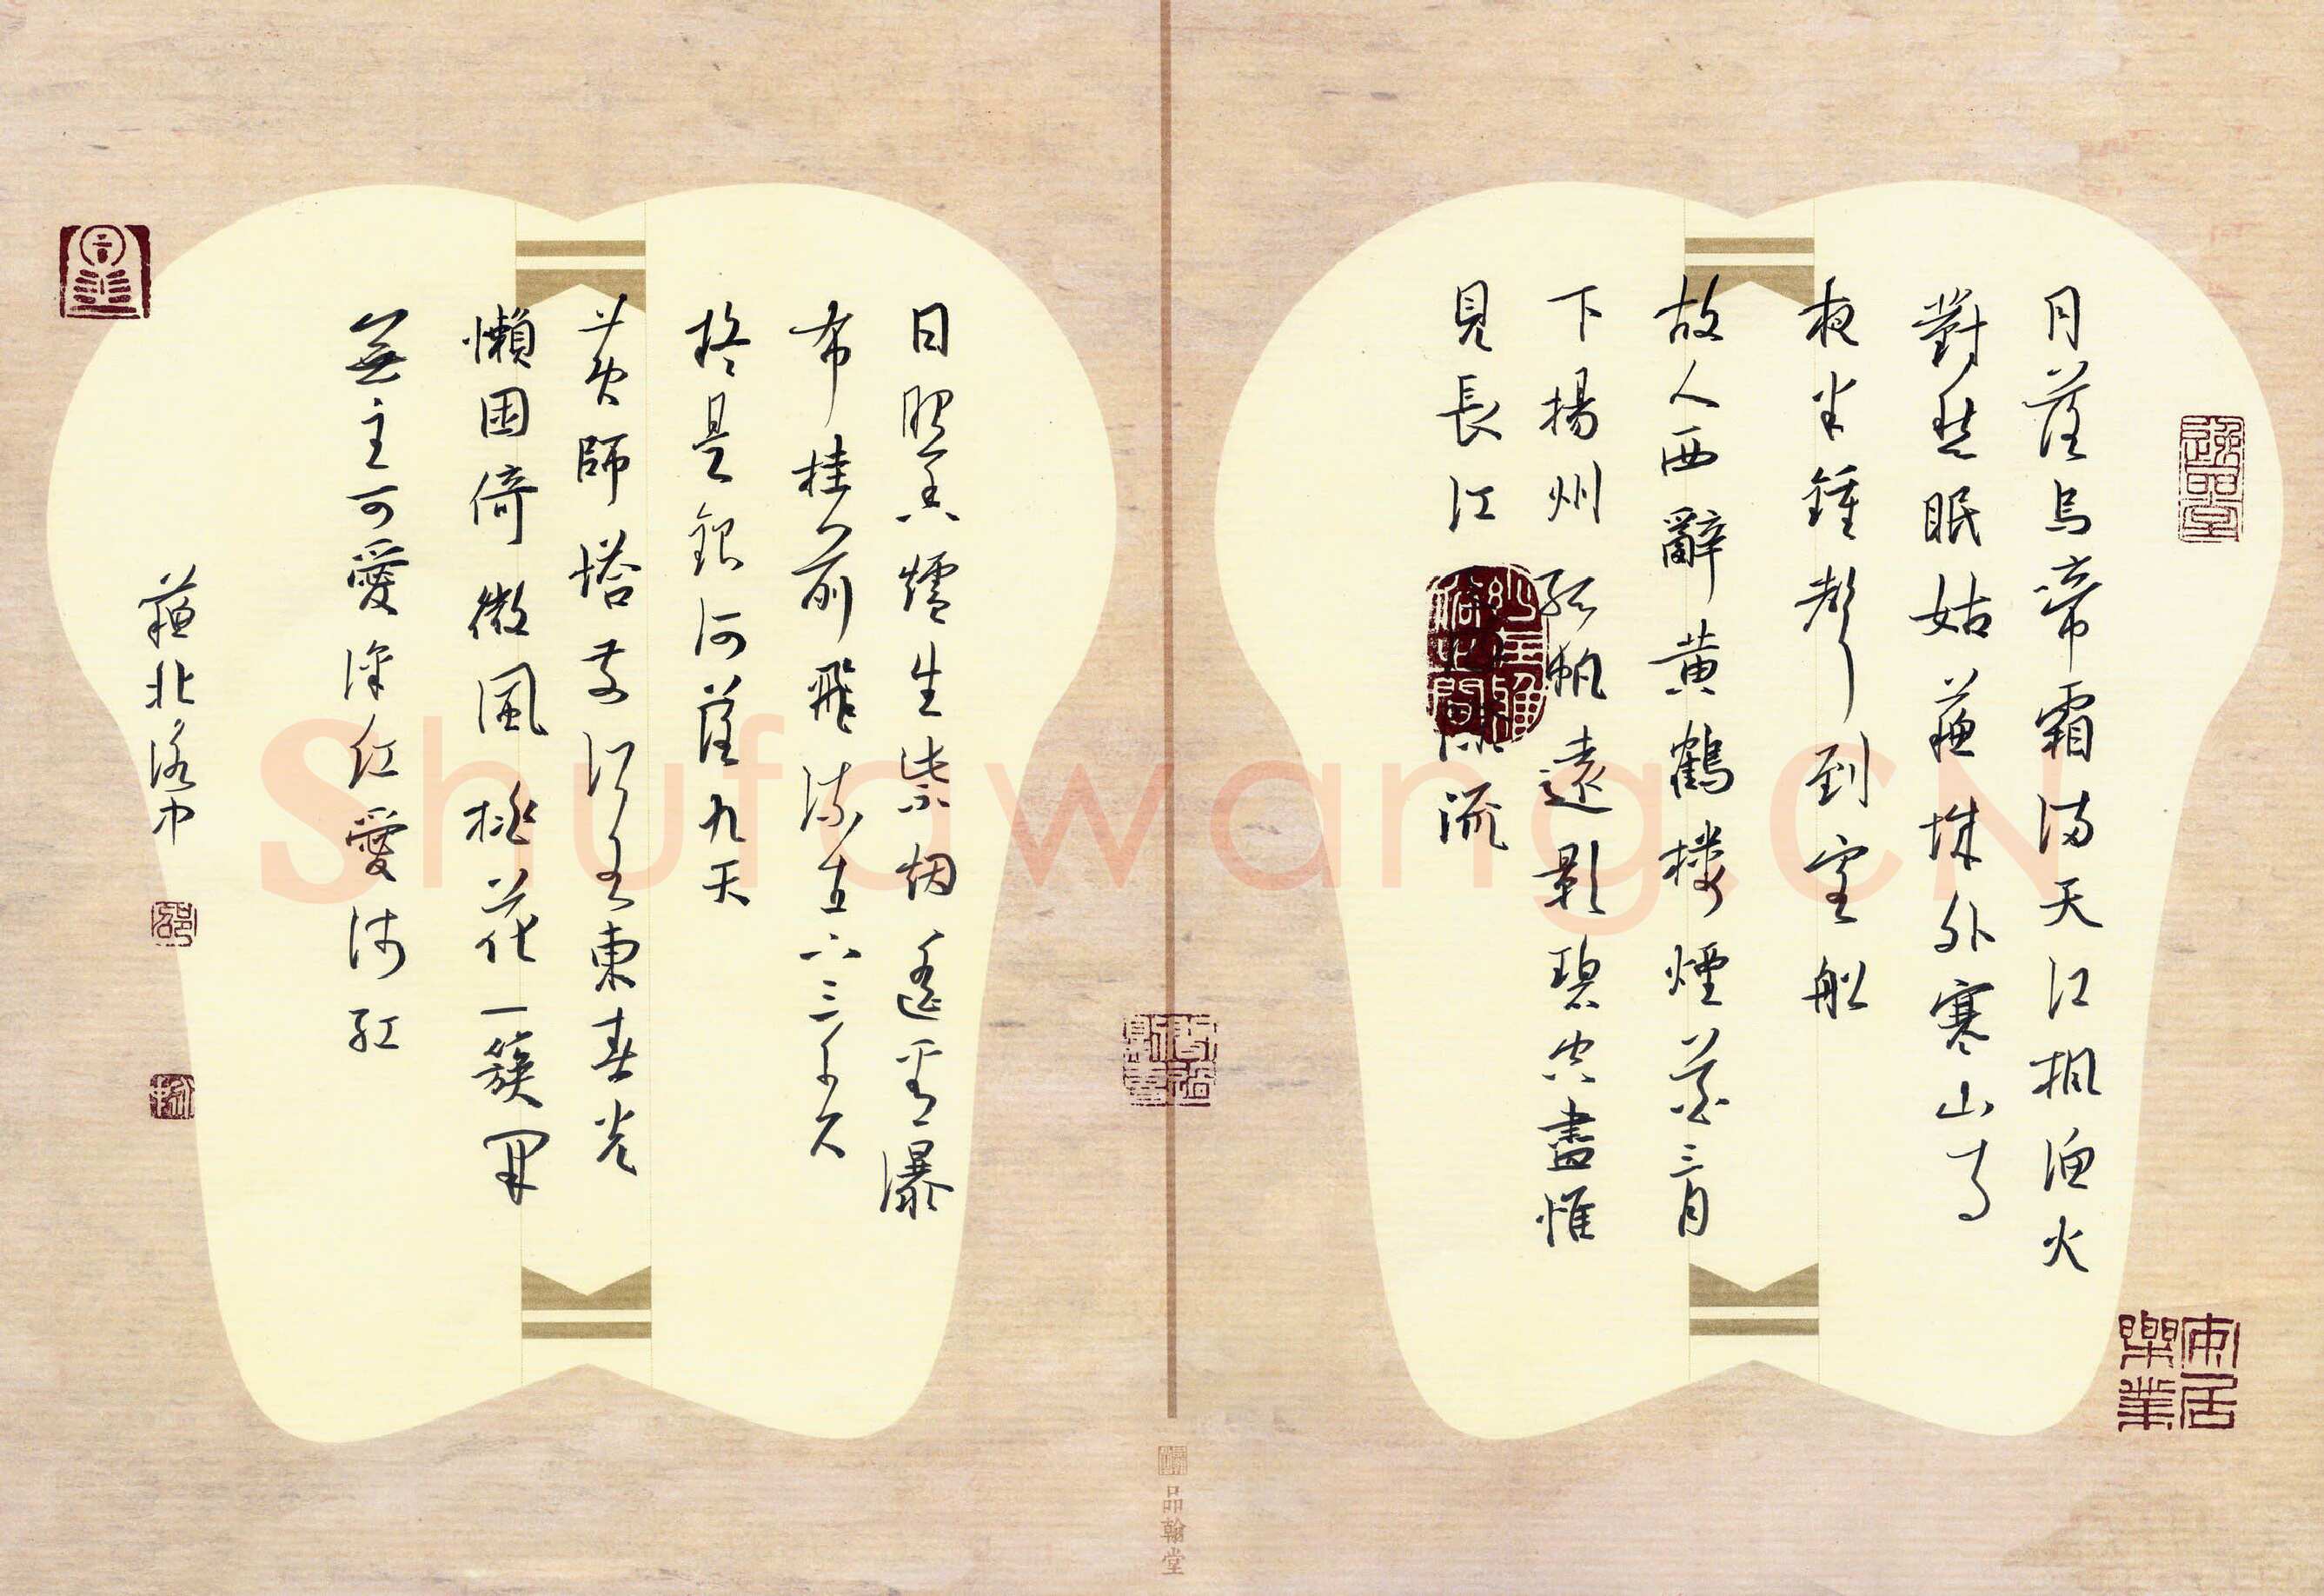 月落烏啼霜滿天江楓漁火
對愁眠姑蘇城外寒山寺
夜半鍾聲到客船
故人西辭黄鶴樓煙花三月
下揚州孤帆遠影碧空盡惟
見長江際流
日照香爐生紫烟遙看瀑
布挂前飛流直下三千尺
疑是銀河落九天
黄師塔前江水東春光
懶困倚微風桃花一簇開
無主可愛深紅愛淺紅
蘇北
安居樂業
品翰堂
Shufawang.CN